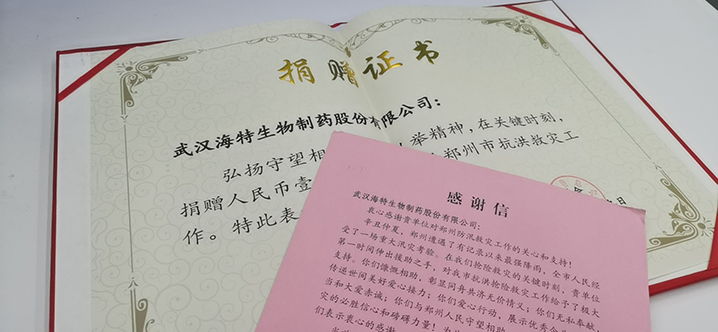 捐赠证书
武汉海特生物制药股份有限公司：
弘扬守望相 举精神，在关键时刻，
捐赠人民币壹 郑州市抗洪救灾工
作。特此表
日
感谢信
武汉海特生物制药股份有限公司：
衷心感谢贵单位对郑州防汛救灾工作的关心和支持！
辛丑仲夏，郑州遭遇了有记录以来最强降雨，全市人民经
受了一场重大汛灾考验。在我们抢险救灾的关键时刻，贵单位
第一时间伸出援助之手，对我市抗洪抢险救灾工作给予了极大
支持。你们慷慨相助，彰显同舟共济无价情义；你们无私奉献
传递世间美好爱心接力；你们爱心行动，展示优秀企
当和大爱赤诚；你们与郑州人民守望相
灾的必胜信心和磅礴力量！
们表示衷心的感谢